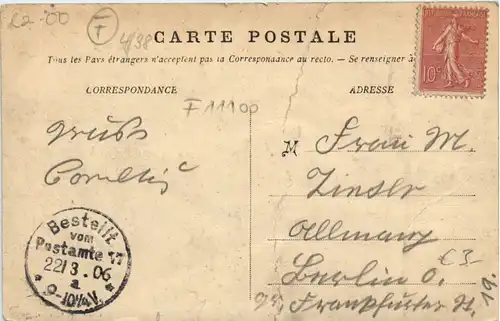 £2.00
F
4/38
CARTE POSTALE
Tous les Pays étrangers n'acceptent pas la Correspondance au recto. — Se renseigner à
CORRESPONDANCE
ADRESSE
F 11100
10c
Gruß
M Frau M.
Allmang
Berlin O. €3
Frankfurter 19.
Bestellt
vom
Postamte 17
22/3.06
a
9-10¼V.